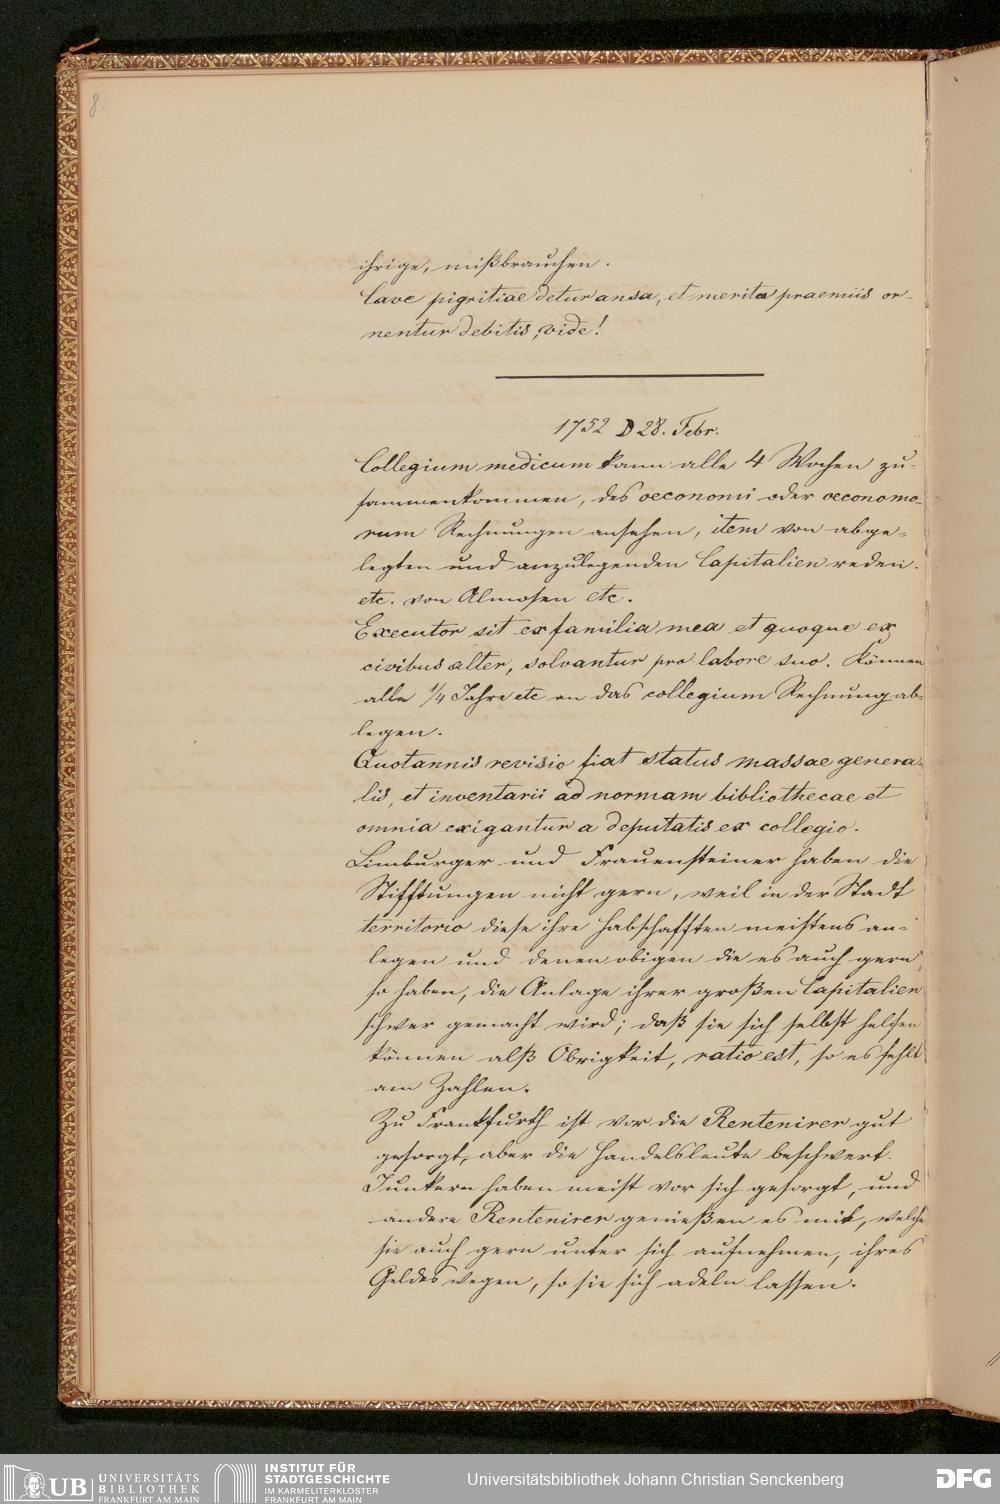 8.
ihrige, mißbrauchen.
Cave pigritiae detur ansa, et merita praemiis or-
nentur debitis, vide!
1752 D 28. Febr.
Collegium medicum kann alle 4 Wochen zu-
sammenkommen, des oeconomi oder oeconomo-
rum Rechnungen ansehen, item von abge-
legten und anzulegenden Capitalien reden.
etc. von Almosen etc.
Executor sit ex familia mea et quoque ex
civibus alter, solvantur pro labore suo. Können
alle 1/4 Jahre etc an das collegium Rechnung ab-
legen.
Quotannis revisio fiat status massae genera-
lis, et inventarii ad normam bibliothecae et
omnia exigantur a deputatis ex collegio.
Limburger und Frauensteiner haben die
Stifftungen nicht gern, weil in der Stadt
territorio diese ihre Habschafften meistens an-
legen und denen obigen die es auch gern
so haben, die Anlage ihrer großen Capitalien
schwer gemacht wird; daß sie sich selbst helfen
können alß Obrigkeit, ratio est, so es fehlt
am Zahlen.
Zu Frankfurth ist vor die Rentenirer gut
gesorgt, aber die Handelsleute beschwert.
Junkern haben meist vor sich gesorgt, und
andere Rentenirer genießen es mit, welche
sie auch gern unter sich aufnehmen, ihres
Geldes wegen, so sie sich adeln lassen.
UB UNIVERSITÄTS
BIBLIOTHEK
FRANKFURT AM MAIN
INSTITUT FÜR
STADTGESCHICHTE
IM KARMELITERKLOSTER
FRANKFURT AM MAIN
Universitätsbibliothek Johann Christian Senckenberg
DFG